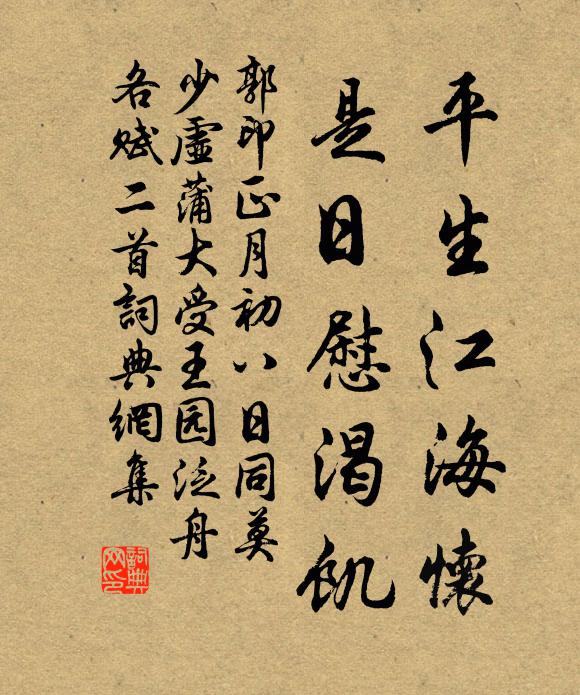 平生江海懷
是日慰渴飢
郭印正月初八日同莫
少虛蒲大受王园泛舟
各赋二首詞典網集
詞典网印